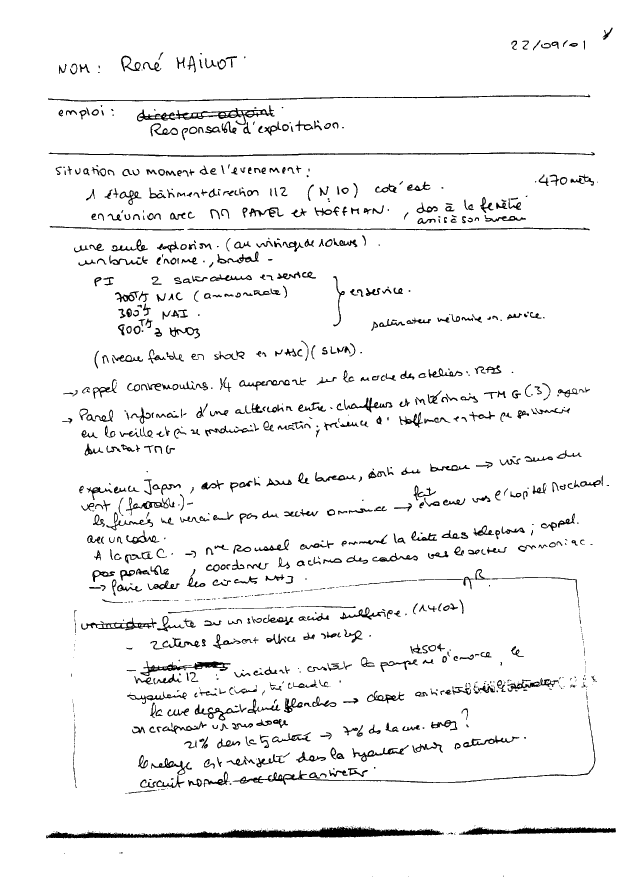 22/09/01
NOM : René MAILLOT.
emploi : directeur adjoint
Responsable d'exploitation.
Situation au moment de l'évenement :
1 étage bâtiment direction 112 (N 10) coté est. 470 mètrs.
en réunion avec MM PANEL et HOFFMAN. , dos à la fenêtre
assis à son bureau
une seule explosion. (au voisinage de 10 heures).
un bruit énorme, brutal -
PI 2 saturateurs en service
700 T/J N1C (ammonitrate)
300 T/J NAI.
800 T/J HNO3
en service.
saturateur en service.
(niveau faible en stock en NASC) (SLNA).
→ appel 1/4 auparavant sur la marche des ateliers : RAS.
→ Panel informait d'une altercation entre chauffeurs et intérimais TMG (3) ayant
eu la veille et le matin ; présence d'Hoffman en tant que
du contrat TMG
expérience Japon, est parti sous le bureau, sorti du bureau → voir sens du
vent (favorable) -
les fumées ne venaient pas du secteur ammoniac → fait évacuer vers l'hopital Marchand.
avec un cadre.
A la porte C. → Mme Roussel avait emmené la liste des telephones ; appel
pas possible , coordonner les actions des cadres vers le secteur ammoniac.
→ faire les circuits NH3
un incident fuite sur un stockage acide sulfurique. (14/07)
- 2 citernes faisant office de stockage.
- Jeudi
Vendredi 12 : incident : constat la pompe H2SO4 ne d'amorce, la
tuyauterie était chaud, très chaude.
la cuve degageait fumée blanches → clapet
on craignait un
21% dans la tyauterie → 7% de la cuve. HNO3 ?
le relage est reinjecté dans la tyauterie saturateur.
circuit normal. avec clapet